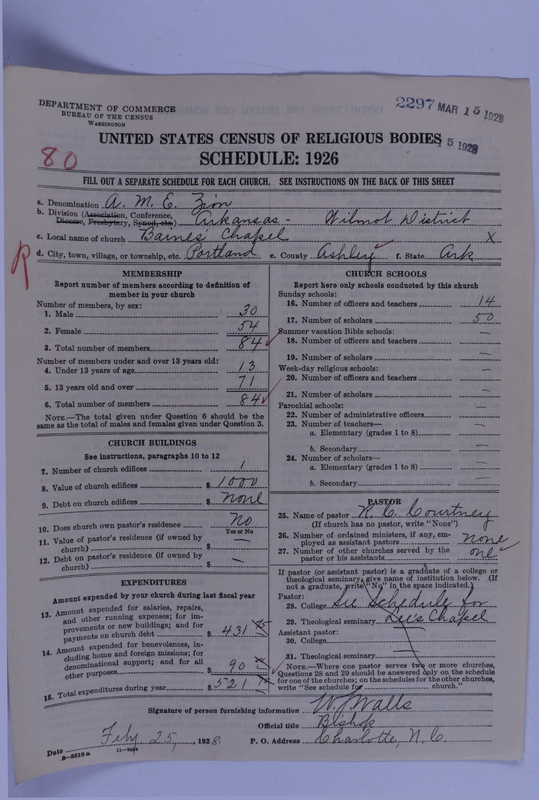 DEPARTMENT OF COMMERCE
BUREAU OF THE CENSUS
WASHINGTON
2297 MAR 15 1928
15 1928
UNITED STATES CENSUS OF RELIGIOUS BODIES
SCHEDULE: 1926
80
FILL OUT A SEPARATE SCHEDULE FOR EACH CHURCH. SEE INSTRUCTIONS ON THE BACK OF THIS SHEET
a. Denomination A. M. E. Zion
b. Division (Association, Conference, Diocese, Presbytery, Synod, etc.) Arkansas - Wilmot District
c. Local name of church Baines Chapel X
R
d. City, town, village, or township, etc. Portland e. County Ashley f. State Ark
MEMBERSHIP
Report number of members according to definition of member in your church
Number of members, by sex:
1. Male 30
2. Female 54
3. Total number of members 84
Number of members under and over 13 years old:
4. Under 13 years of age 13
5. 13 years old and over 71
6. Total number of members 84
NOTE.—The total given under Question 6 should be the same as the total of males and females given under Question 3.
CHURCH BUILDINGS
See instructions, paragraphs 10 to 12
7. Number of church edifices 1
8. Value of church edifices $ 1000
9. Debt on church edifices $ none
10. Does church own pastor's residence No
Yes or No
11. Value of pastor's residence (if owned by church) $ —
12. Debt on pastor's residence (if owned by church) $ —
EXPENDITURES
Amount expended by your church during last fiscal year
13. Amount expended for salaries, repairs, and other running expenses; for improvements or new buildings; and for payments on church debt $ 431
14. Amount expended for benevolences, including home and foreign missions; for denominational support; and for all other purposes $ 90
15. Total expenditures during year $ 521
CHURCH SCHOOLS
Report here only schools conducted by this church
Sunday schools:
16. Number of officers and teachers 14
17. Number of scholars 50
Summer vacation Bible schools:
18. Number of officers and teachers —
19. Number of scholars —
Week-day religious schools:
20. Number of officers and teachers —
21. Number of scholars —
Parochial schools:
22. Number of administrative officers —
23. Number of teachers—
a. Elementary (grades 1 to 8) —
b. Secondary —
24. Number of scholars—
a. Elementary (grades 1 to 8) —
b. Secondary —
PASTOR
25. Name of pastor R. C. Courtney
(If church has no pastor, write "None")
26. Number of ordained ministers, if any, employed as assistant pastors None
27. Number of other churches served by the pastor or his assistants one
If pastor (or assistant pastor) is a graduate of a college or theological seminary, give name of institution below. (If not a graduate, write "No" in the space indicated.)
Pastor:
28. College See Schedule for
29. Theological seminary Lee's Chapel
Assistant pastor:
30. College
31. Theological seminary —
NOTE.—Where one pastor serves two or more churches, Questions 28 and 29 should be answered only on the schedule for one of the churches; on the schedules for the other churches, write "See schedule for church."
Signature of person furnishing information W. J. Walls
Official title Bishop
Date Feby. 25, 1928. P. O. Address Charlotte, N. C.